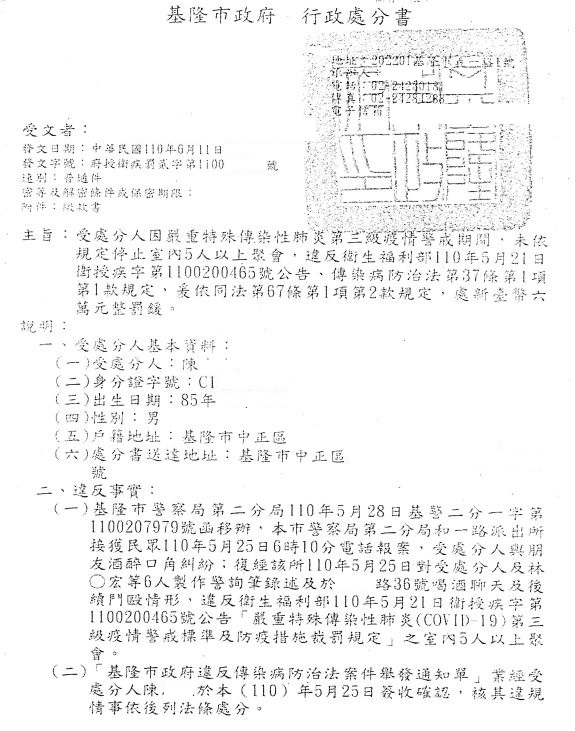 基隆市政府 行政處分書
地址：202201基隆市義二路1號
承辦人：
電話：02-24201
傳真：02-24281288
電子信箱
受文者：
發文日期：中華民國110年6月11日
發文字號：府授衛疾罰貳字第1100 號
速別：普通件
密等及解密條件或保密期限：
附件：繳款書
主旨：受處分人因嚴重特殊傳染性肺炎第三級疫情警戒期間，未依
規定停止室內5人以上聚會，違反衛生福利部110年5月21日
衛授疾字第1100200465號公告、傳染病防治法第37條第1項
第1款規定，爰依同法第67條第1項第2款規定，處新臺幣六
萬元整罰鍰。
說明：
一、受處分人基本資料：
(一)受處分人：陳
(二)身分證字號：C1
(三)出生日期：85年
(四)性別：男
(五)戶籍地址：基隆市中正區
(六)處分書送達地址：基隆市中正區
號
二、違反事實：
(一)基隆市警察局第二分局110年5月28日基警二分一字第
1100207979號函移辦，本市警察局第二分局和一路派出所
接獲民眾110年5月25日6時10分電話報案，受處分人與朋
友酒醉口角糾紛；復經該所110年5月25日對受處分人及林
○宏等6人製作警詢筆錄述及於 路36號喝酒聊天及後
續鬥毆情形，違反衛生福利部110年5月21日衛授疾字第
1100200465號公告「嚴重特殊傳染性肺炎(COVID-19)第三
級疫情警戒標準及防疫措施裁罰規定」之室內5人以上聚
會。
(二)「基隆市政府違反傳染病防治法案件舉發通知單」業經受
處分人陳 於本（110）年5月25日簽收確認，核其違規
情事依後列法條處分。